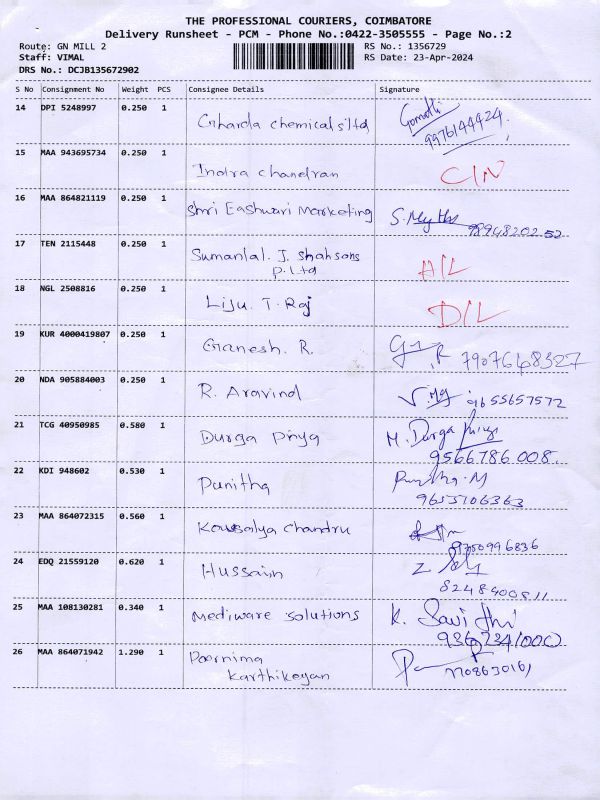 THE PROFESSIONAL COURIERS, COIMBATORE
Delivery Runsheet - PCM - Phone No.:0422-3505555 - Page No.:2
Route: GN MILL 2 RS No.: 1356729
Staff: VIMAL RS Date: 23-Apr-2024
DRS No.: DCJB135672902
S No Consignment No Weight PCS Consignee Details Signature
14 DPI 5248997 0.250 1 Gharda chemicals ltd Gomathi
9976144424.
15 MAA 943695734 0.250 1 Indra chandran C/N
16 MAA 864821119 0.250 1 Shri Eashwari Marketing
9894820252
17 TEN 2115448 0.250 1 Sumanlal. J. Shahsons
P. Ltd
18 NGL 2508816 0.250 1 Liju. T. Raj D/L
19 KUR 4000419807 0.250 1 Ganesh. R. 7907648327
20 NDA 905884003 0.250 1 R. Aravind 9655657572
21 TCG 40950985 0.580 1 Durga Priya M. Durga Priya
9566786008.
22 KDI 948602 0.530 1 Punitha Punitha. M
9655106363
23 MAA 864072315 0.560 1 Kousalya chandru
9750996836
24 EDQ 21559120 0.620 1 Hussain
8248400811
25 MAA 108130281 0.340 1 Mediware solutions K. Savithri
26 MAA 864071942 1.290 1 Poornima
Karthikeyan 7708630161